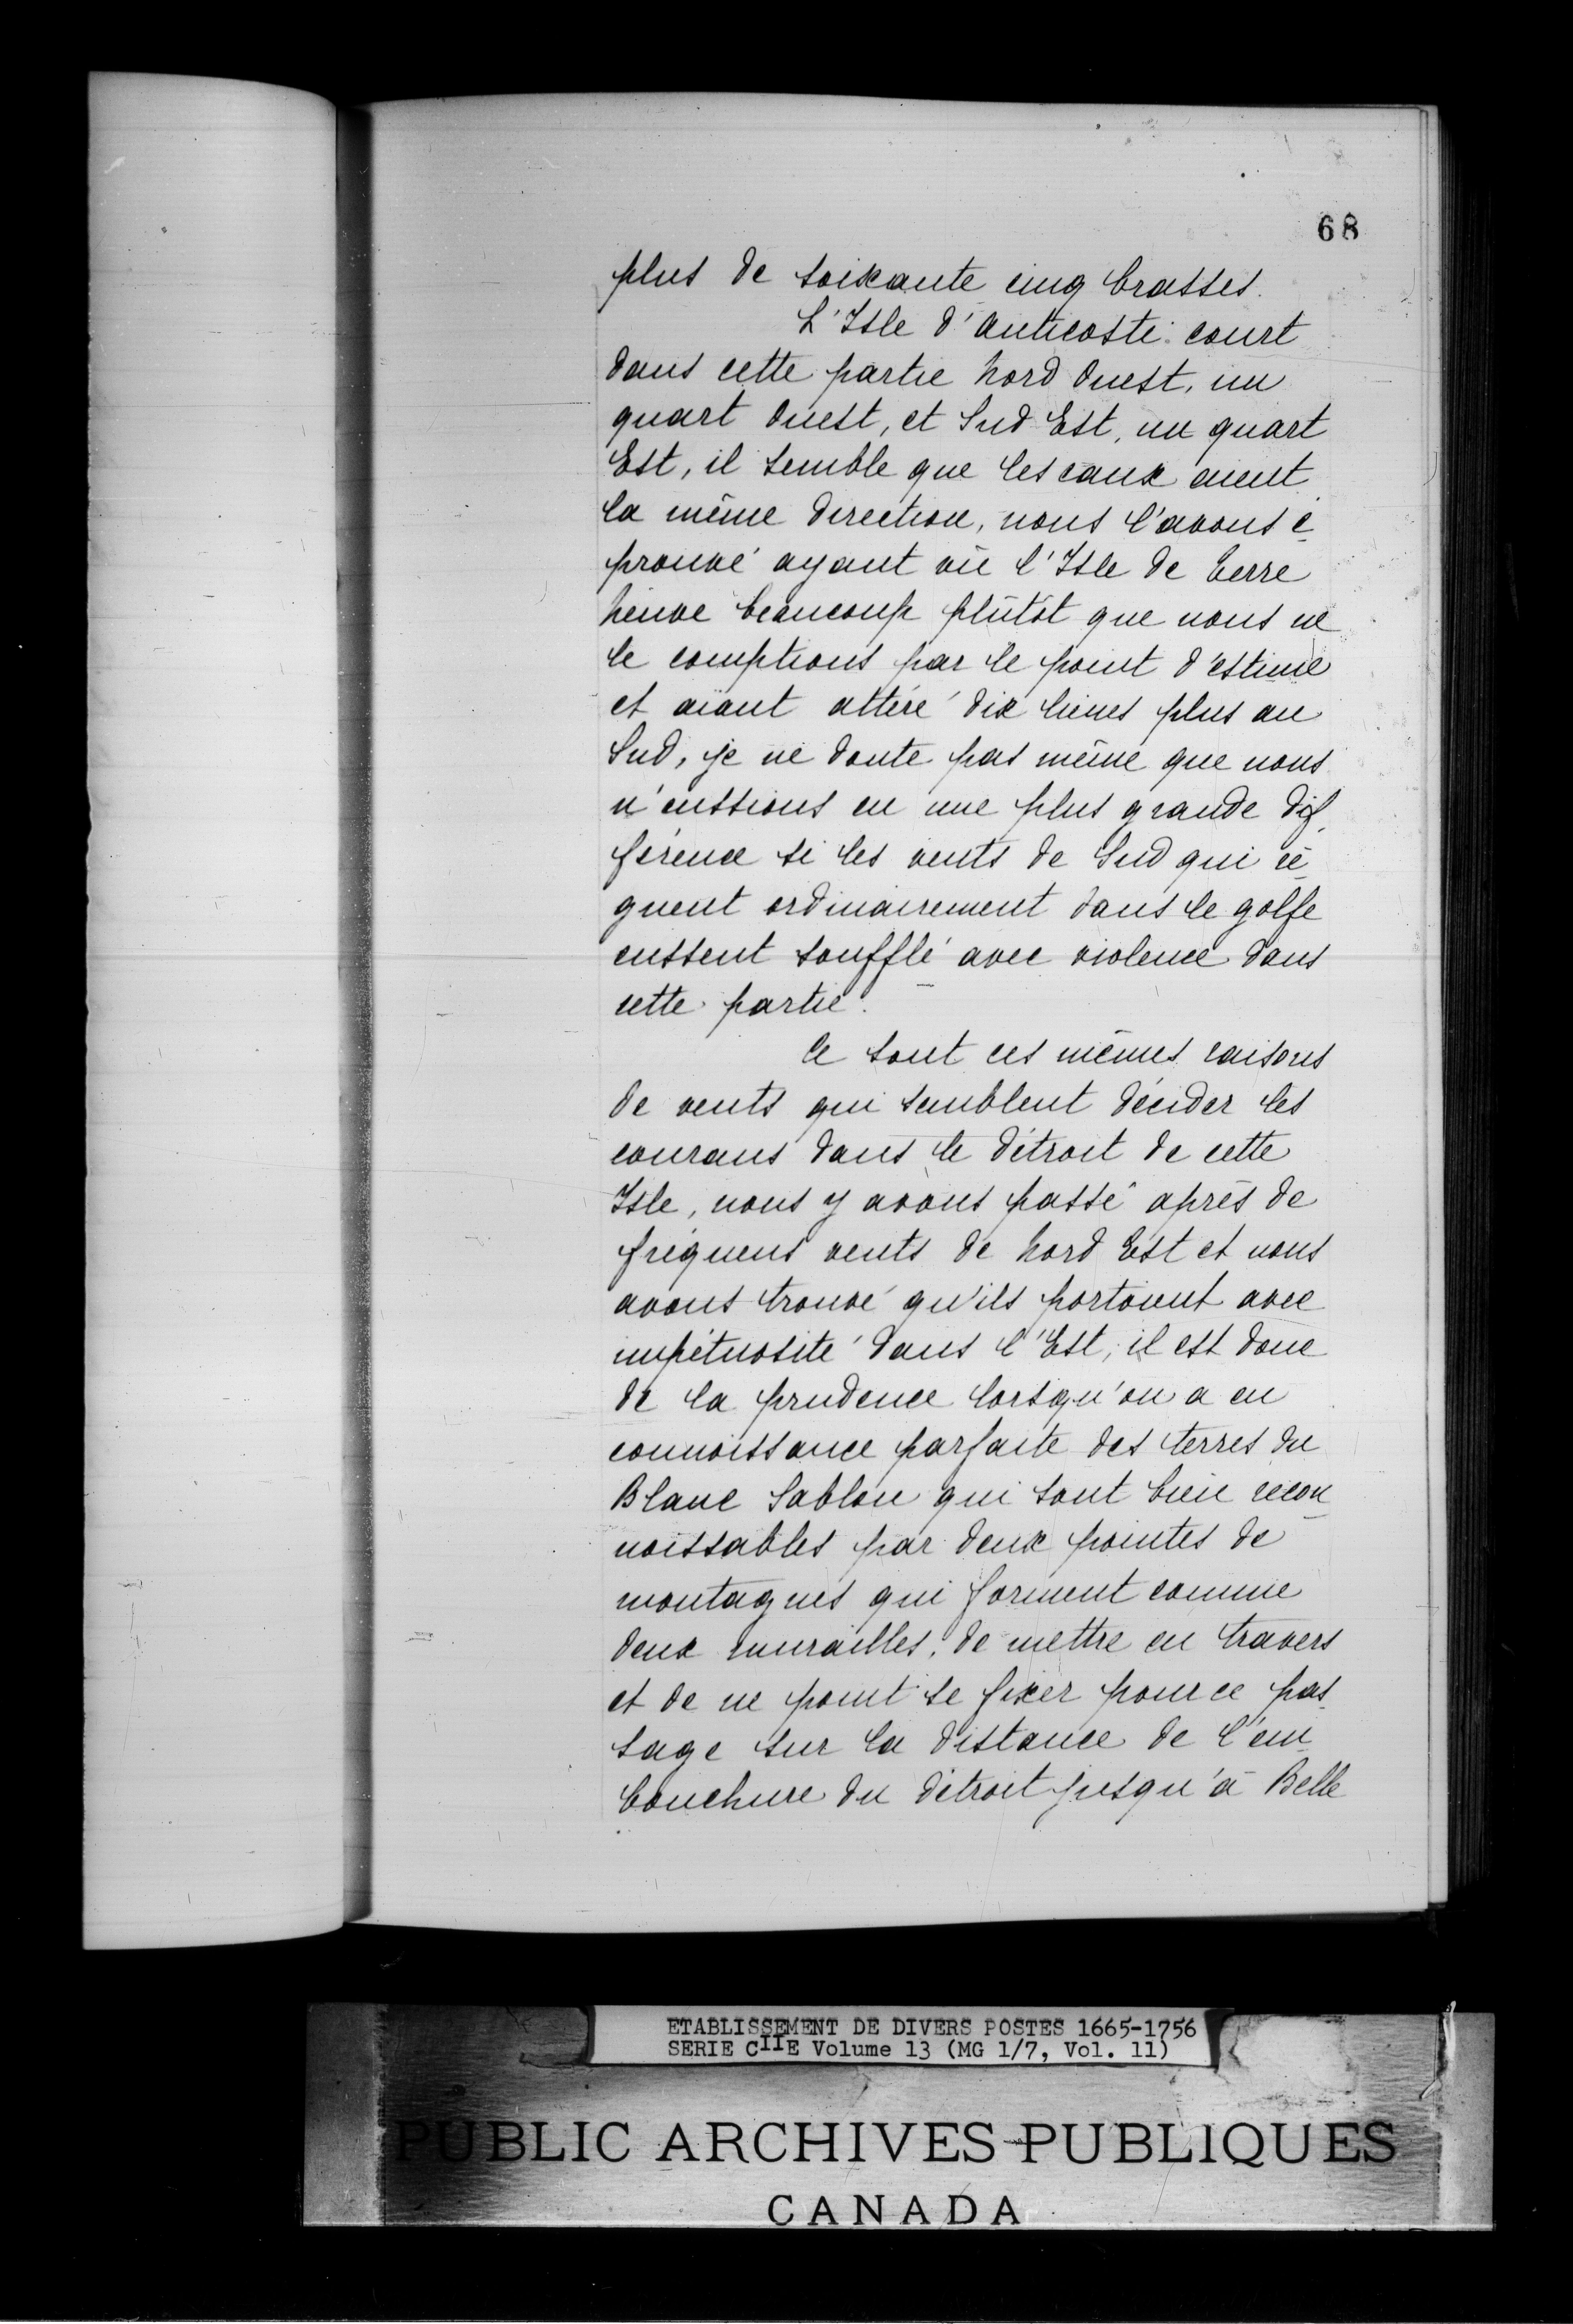 68
plus de soixante cinq brasses.
L'Isle d'Anticosti court
dans cette partie Nord Ouest, un
quart Ouest, et Sud Est, un quart
Est, il semble que les eaux aient
la même direction, nous l'avons é-
prouvé ayant vû l'Isle de Terre
Neuve beaucoup plûtôt que nous ne
le comptions par le point d'estime
et aïant attéré dix lieues plus au
Sud, je ne doute pas même que nous
n'eussions eu une plus grande dif-
férence si les vents de Sud qui rè-
gnent ordinairement dans le golfe
eussent soufflé avec violence dans
cette partie.
Ce sont ces mêmes raisons
de vents qui semblent décider les
courans dans le détroit de cette
Isle, nous y avons passé après de
fréquens vents de Nord Est et nous
avons trouvé qu'ils portoient avec
impétuosité dans l'Est, il est donc
de la prudence lorsqu'on a eu
connoissance parfaite des terres du
Blanc Sablon qui sont bien recon-
noissables par deux pointes de
montagnes qui forment comme
deux murailles, de mettre en travers
et de ne point se fixer pour ce pas-
sage sur la distance de l'em-
bouchure du détroit jusqu'à Belle
ETABLISSEMENT DE DIVERS POSTES 1665-1756
SERIE CIIE Volume 13 (MG 1/7, Vol. 11)
PUBLIC ARCHIVES PUBLIQUES
CANADA